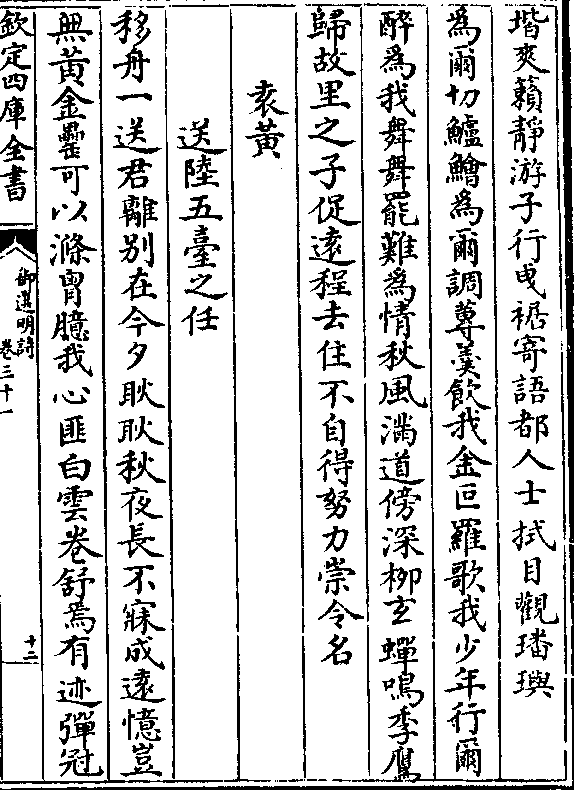 堦爽籟靜游子行曵裾寄語都人士拭目觀璠璵
為爾切鱸鱠為爾調蓴羮飲我金叵羅歌我少年行爾
醉為我舞舞罷難為情秋風滿道傍深柳玄蟬鳴季鷹
歸故里之子促遠程去住不自得努力崇令名
袁黃
送陸五臺之任
移舟一送君離别在今夕耿耿秋夜長不寐成遠憶豈
無黃金罍可以滌胷臆我心匪白雲卷舒焉有迹彈冠
欽定四庫全書
御選明詩
卷三十一
十二